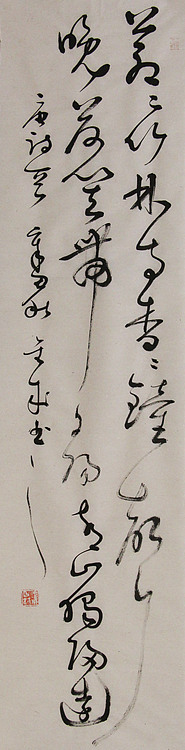 蒼〻竹林寺杳〻鐘聲
晚荷笠帶夕陽青山獨歸遠
唐詩 秋 書